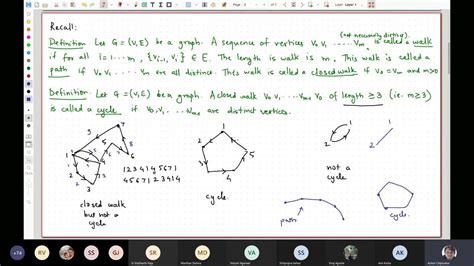 Recall:
(not necessarily distinct)
Definition Let G=(V,E) be a graph. A sequence of vertices v₀ v₁ ..... vₘ is called a walk
if for all i=1...m, {vᵢ₋₁, vᵢ} ∈ E. The length is walk is m. This walk is called a
path if v₀ v₁ ... vₘ are all distinct. This walk is called a closed walk if v₀ = vₘ and m>0
Definition: Let G=(V,E) be a graph. A closed walk v₀ v₁ .... vₘ₋₁ v₀ of length ≥3 (i.e. m≥3)
is called a cycle if v₀, v₁ .... vₘ₋₁ are distinct vertices.
1 2 3 4 1 4 5 6 7 1
4 5 6 7 1 2 3 4 1 4
closed walk
but not a
cycle
1
2
3
4
5
cycle.
1
2
1
2
not a
cycle
path
cycle.
+74
RV
SS
SG
S
MD
VA
SS
S
AK